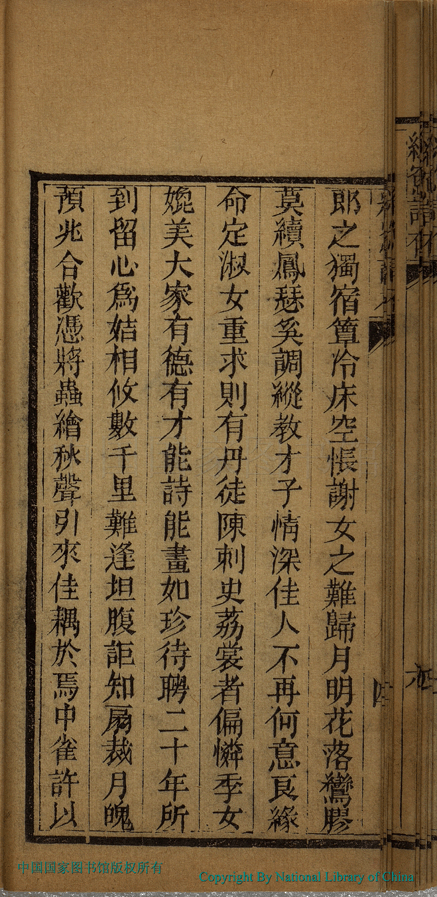 郎之獨宿簟冷床空悵謝女之難歸月明花落鸞膠
莫續鳳瑟奚調縱教才子情深佳人不再何意良緣
命定淑女重求則有丹徒陳刺史荔裳者偏憐季女
媲美大家有德有才能詩能畫如珍待聘二十年所
到留心為姞相攸數千里難逢坦腹詎知扇裁月魄
預兆合歡憑將蟲繪秋聲引來佳耦於焉中雀許以
中国国家图书馆版权所有
Copyright By National Library of China